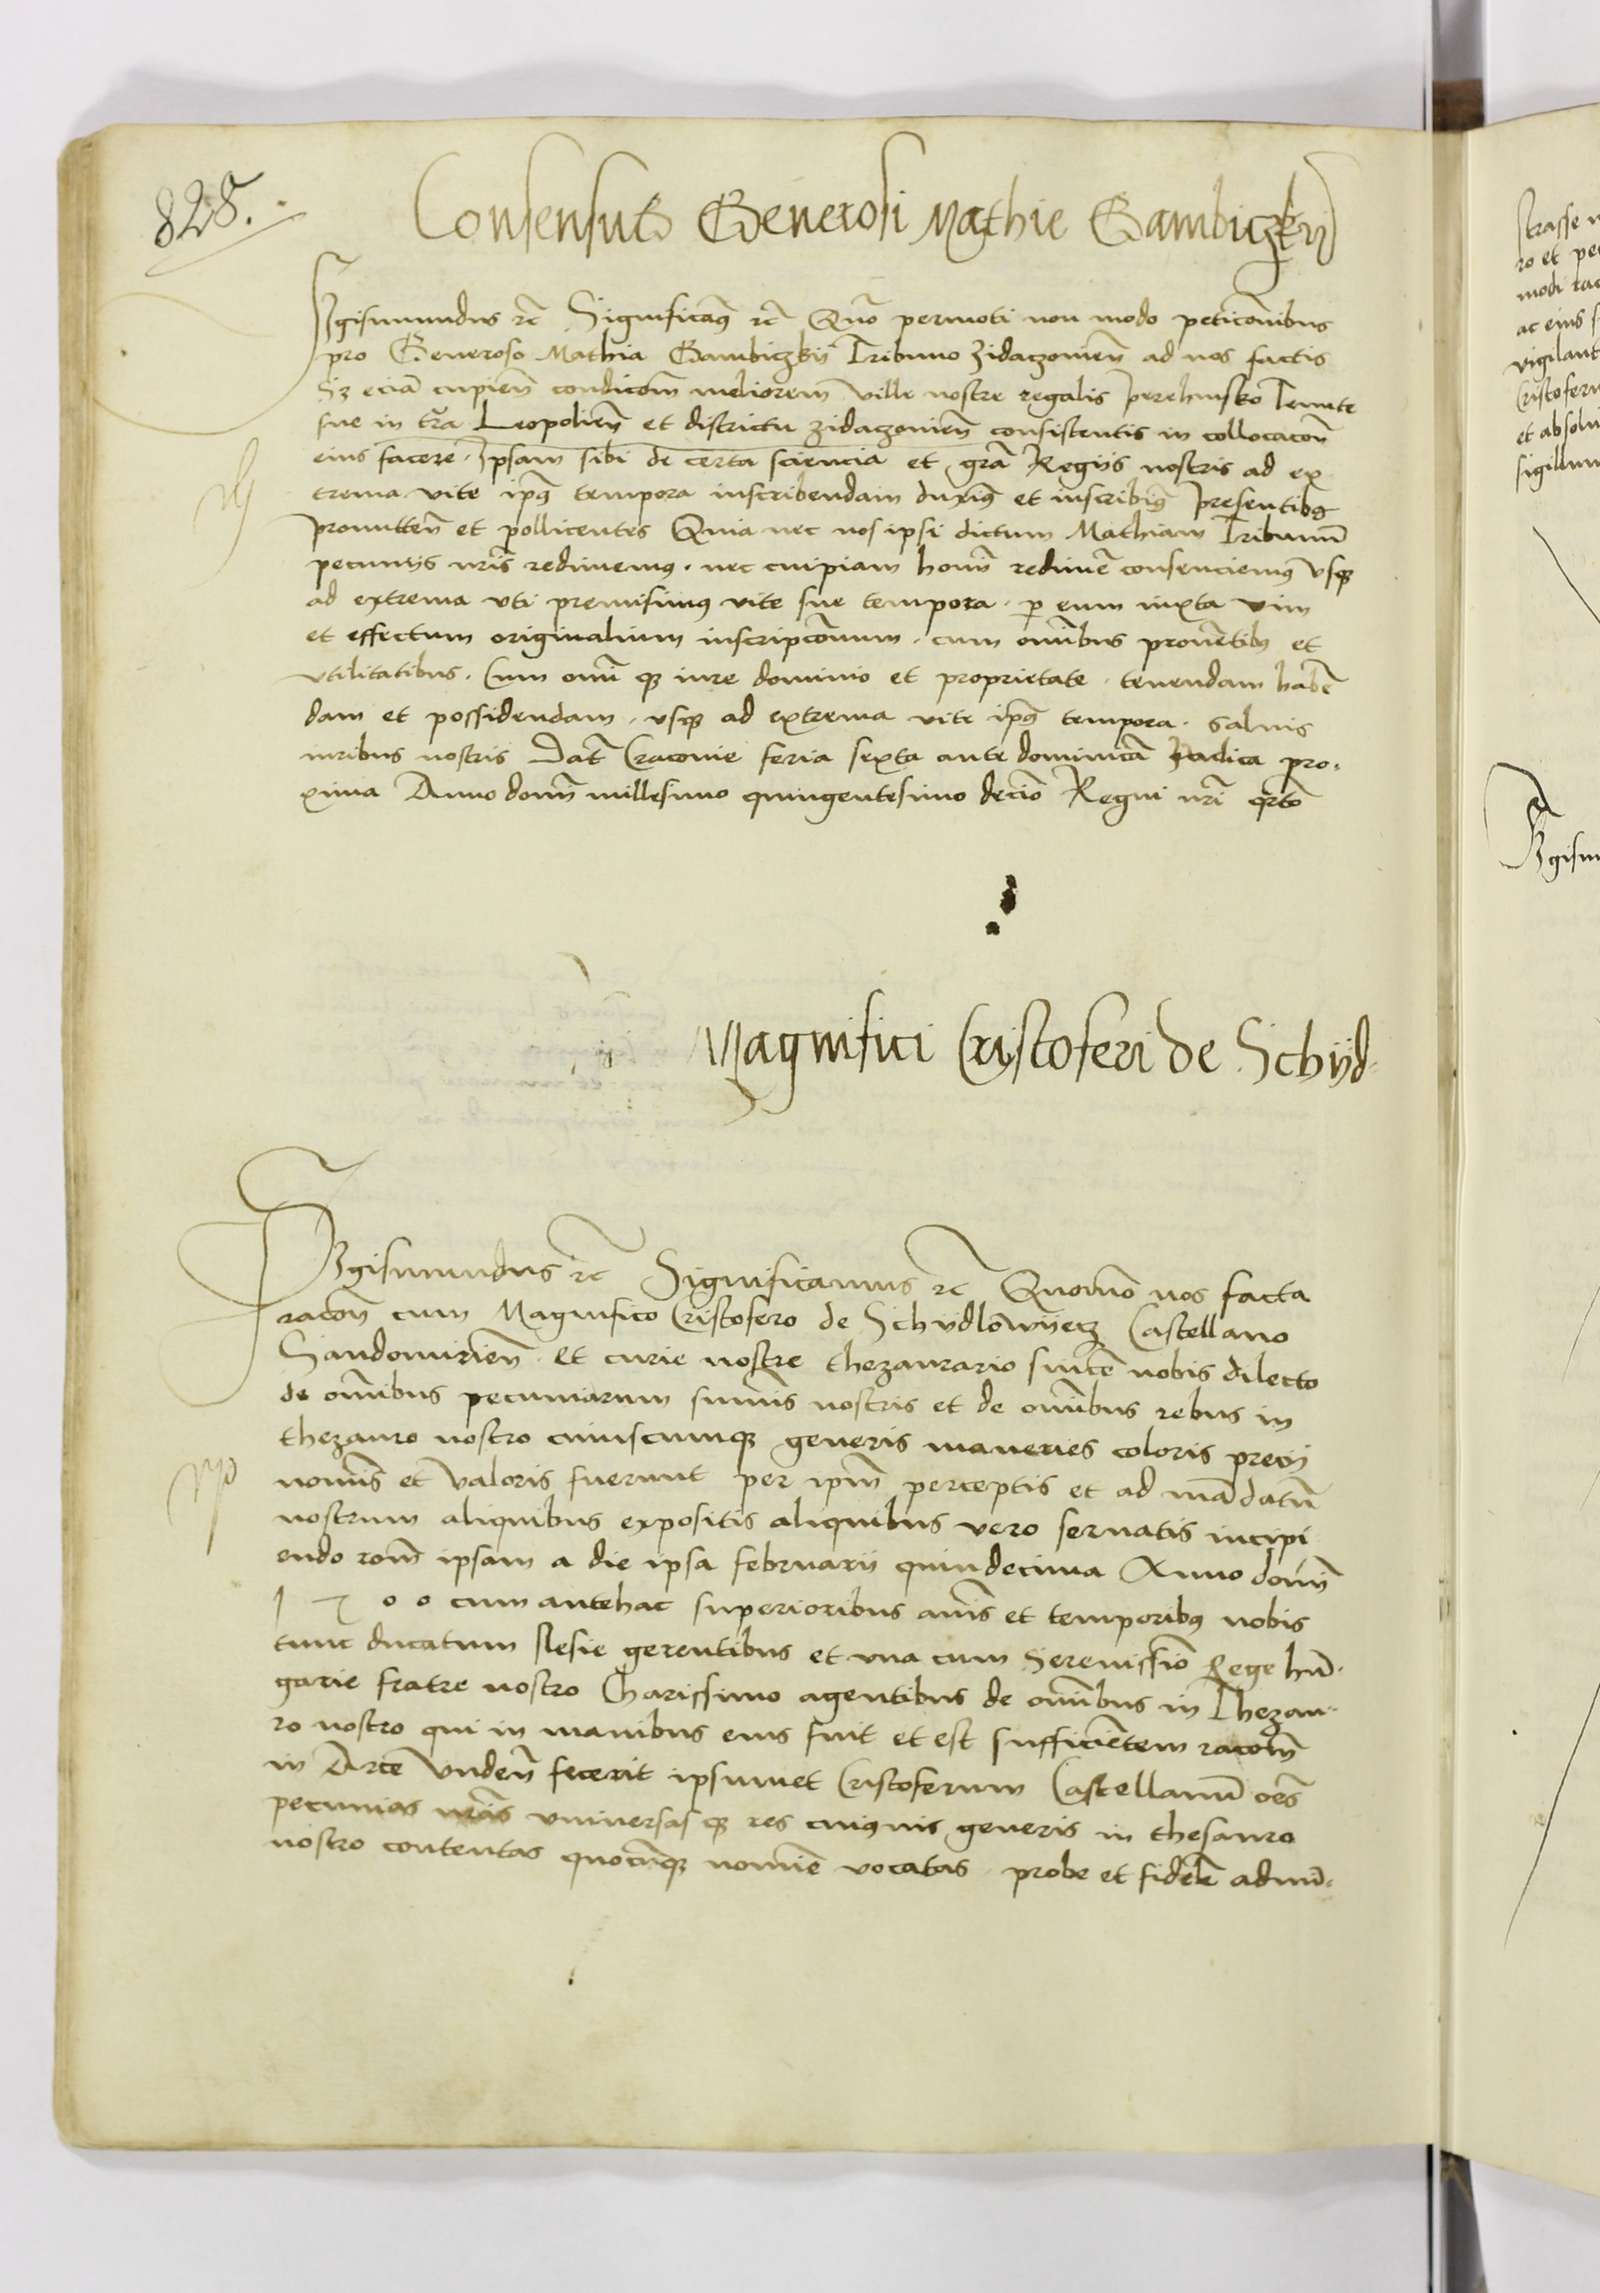 828.
Consensus Generosi Mathie Gambiczkij
Sigismundus etc̃ Significam9 etc̃ Quō permoti non modo peticōnibus
pro Generoso Mathia Gambiczkij Tribuno Zidaczovieñ ad nos factis
Sz eciā cupieñ condicōm meliorem ville nostre regalis perehinsko Tenute
sue in tr̄a Leopolieñ et districtu zidaczovieñ consistentis in collocacōn
eius facere. Ipsam sibi de certa sciencia et gr̄a Regijs nostris ad ex
trema vite ip̄9 tempora inscribendam duxim9 et inscribim9 presentib9
promitteñ et pollicentes Quia nec nos ipsi dictum Mathiam Tribunū
pecunijs nr̄is redimem9. nec cuipiam homī redimē̄ consenciem9 vsq3
ad extrema vti premisim9 vite sue tempora. p̱ eum iuxta vim
et effectum originalium inscripcōnum. cum om̄ibus proventib9 et
vtilitatibus. Cum om̄i q3 iure dominio et proprietate. tenendam habē
dam et possidendam. vsq3 ad extrema vite ip̄9 tempora. Salvis
iuribus nostris Dat̄ Cracovie feria sexta ante dominicā Iudica pro-
xima Anno domī millesimo quingentesimo deciō Regni nr̄i q̄rto
Magnifici Cristoferi de Schijd-
Sigismundus etc̃ Significamus etc̃ Quomō nos facta
racōn cum Magnifico Cristofero de Schijdlōwijecz Castellano
Sandomirieñ. et curie nostre thezaurario sincē nobis dilecto
de om̄ibus pecuniarum sum̄is nostris et de om̄ibus rebus in
thezauro nostro cuiuscumq3 generis maneries coloris precij
nomīs et valoris fuerunt per ip̄m perceptis et ad mādatū
nostrum aliquibus expositis aliquibus vero servatis incipi
endo rōm ipsam a die ipsa februarij quindecima Anno domī
1 5 0 0 cum antehac superioribus an̄is et temporib9 nobis
tunc ducatum slesie gerentibus et vna cum Serenissiō Rege hū-
garie fratre nostro Charissimo agentibus de om̄ibus in Thezau-
ro nostro qui in manibus eius fuit et est sufficiētem racōm
in Arce Vndeñ fecerit ipsumet Cristoferum Castellanū oēs
pecunias nr̄as vniversas q3 res cui9vis generis in thesauro
nostro contentas quocūq3 nomīe vocatas. probe et fidelē admī-